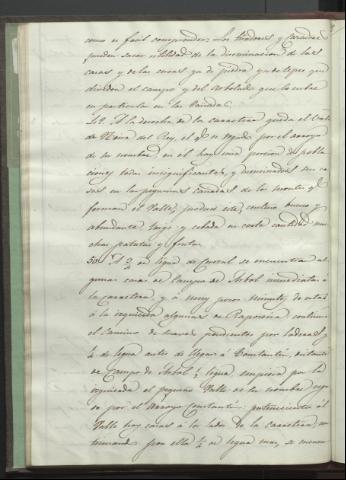 como es facil comprender. Los tiradores y
pueden sacar utilidad de la diseminacion de las
casas y de las cercas ya de piedra ya de tepes que
dividen el campo y del arbolado que lo cubre
en particular en las
29. A la derecha de la carretera queda el Valle
de del Rey, el qe es regado por el arroyo
de su nombre, en el hay una porcion de pobla
ciones todas insignificantes, y diseminadas sus ca
sas en las pequeñas cañadas de los montes qe
forman el Valle, produce este, centeno bueno y
abundante, trigo y cebada en corta cantidad mu
chas patatas y fruta.
30. A de legua de Corral se encuentran al
gunas casas de Campo de Arbol inmediatas á
la carretera, y á muy pocos minutos de estas
á la izquierda algunas de continua
el camino de pendientes por laderas y
½ de legua antes de llegar á Constantin, distante
de Campo de Arbol ½ legua, empieza por la
izquierda el pequeño Valle de su nombre rega
do por el Arroyo Constantin: pertenecientes á el
Valle hay casas á los lados de la carretera, ca
minando por ella ½ de legua mas, se encuen